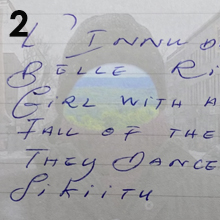 2
INNU D
BELLE RI
GIRL WITH A
FALL OF THE
THEY DANCE
SIKIITU